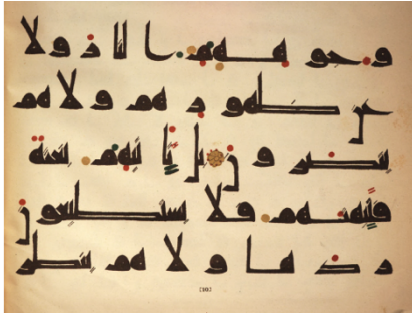 وجوههم النار ولا
عن ظهورهم ولا هم
ينصرون بل تأتيهم بغتة
فتبهتهم فلا يستطيعون
ردها ولا هم ينظرو